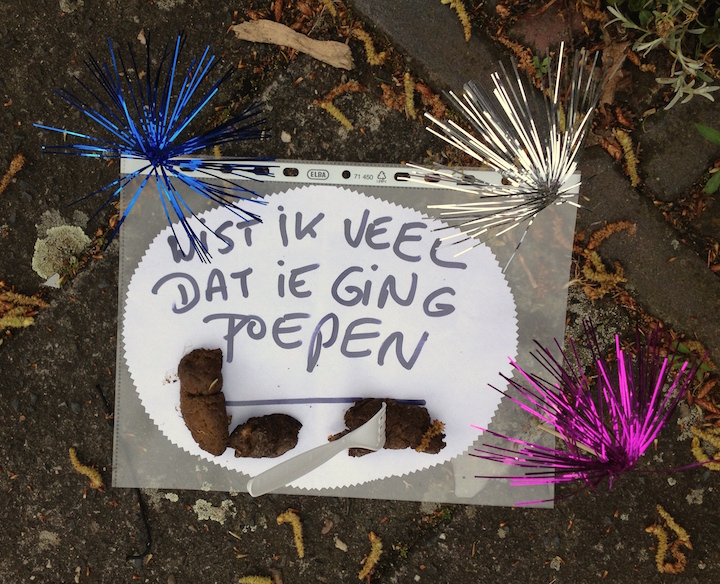 ELBA 71 450
WIST IK VEEL
DAT IE GING
POEPEN